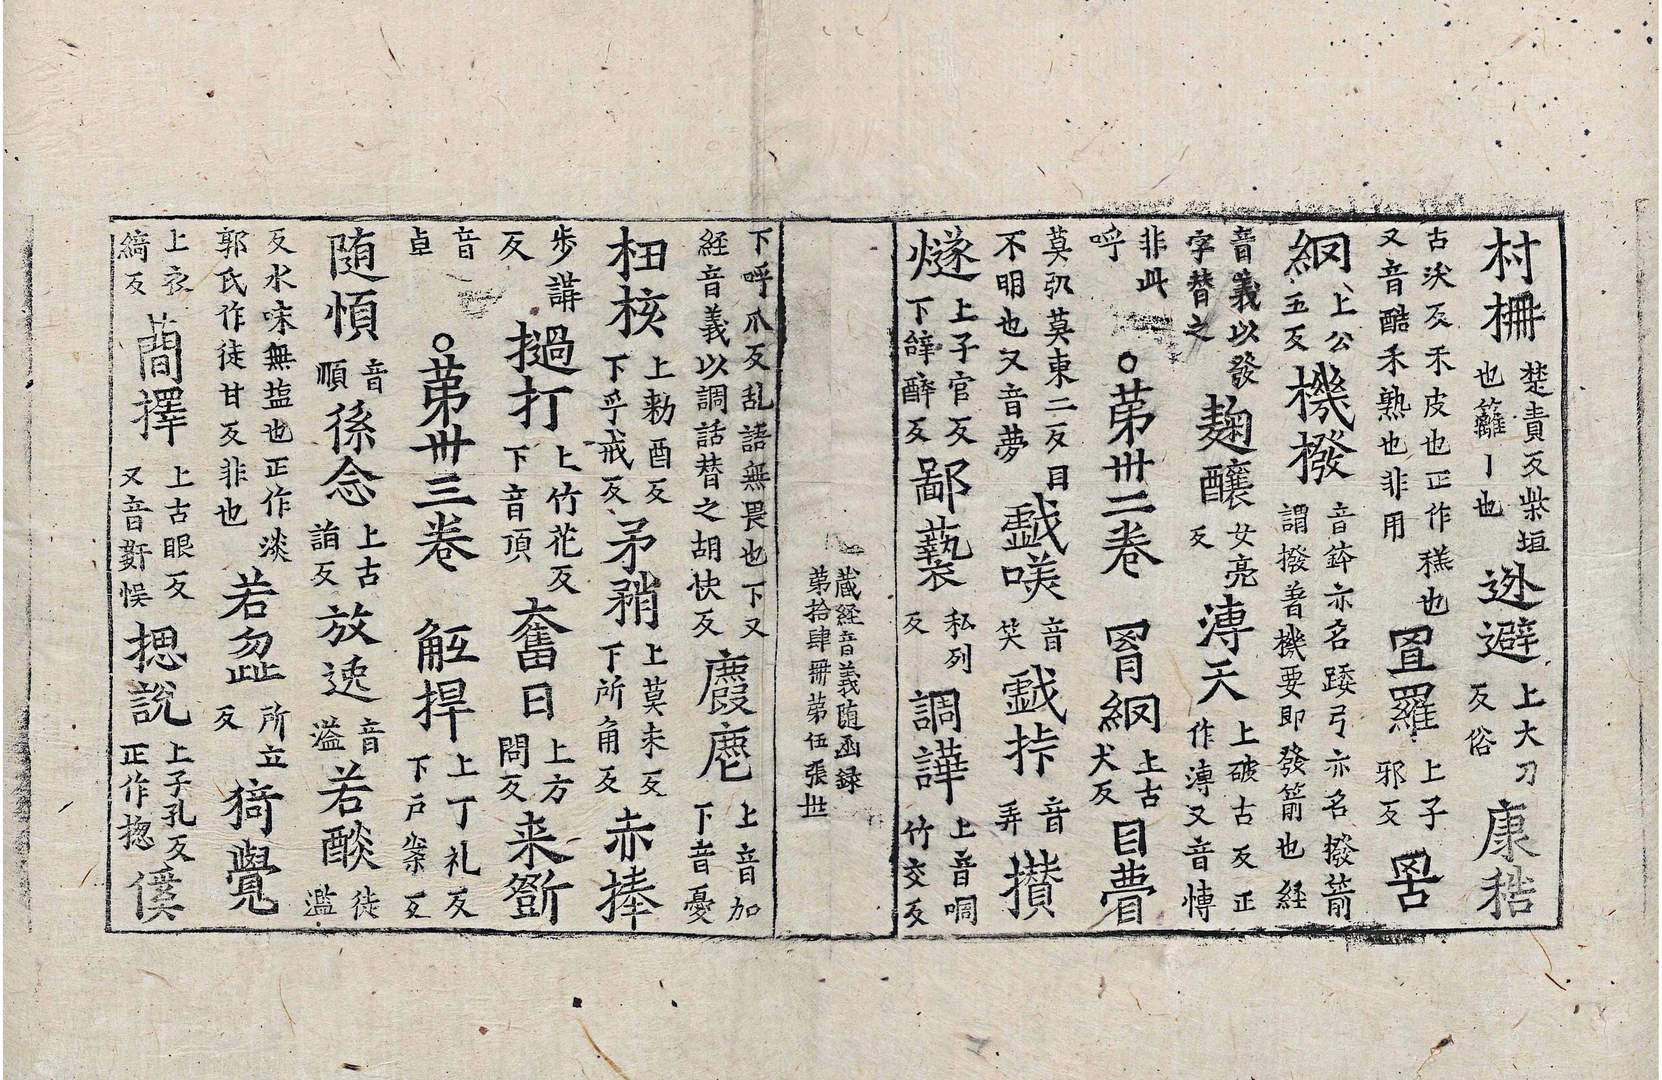 村柵楚責反柴垣也籬丨也逃避上大刀反俗康𥞴
古沃反禾皮也正作䅵也又音酷禾熟也非用罝羅上子邪反罟
䋄上公五反機撥音鉢亦名踒弓亦名撥箭謂撥著機要即發箭也経
音義以發字替之麹釀女亮反溥天上破古反正作溥又音慱
非此呼○苐卅二卷罥䋄上古犬反目瞢
莫𢎞莫東二反目不明也又音夢戯𡁏音笑戯挊音弄攅
燧上子官反下辝醉反鄙䙝私列反調譁上音啁竹交反
蔵経音義随函録
苐拾肆冊苐伍張世
下呼爪反乱語無畏也下又経音義以調話替之胡快反麚麀上音加下音憂
杻核上勑酉反下乎戒反矛矟上莫未反下所角反赤捧
步講反撾打上竹花反下音頂奮日上方問反来斵
音卓○苐卅三卷觝捍上丁礼反下戸案反
随愼音順係念上古詣反放逸音溢若酸徒濫
反水味無塩也正作淡郭氏作徒甘反非也若澁所立反猗覺
上衣綺反蕳擇上古眼反又音姧悮揌說上子孔反正作揔傒